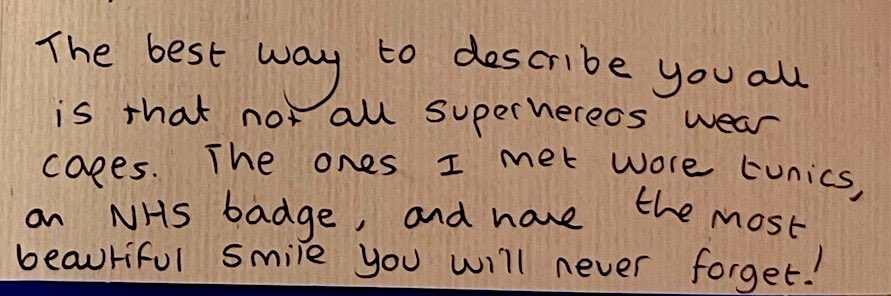 The best way to describe you all
is that not all superhereos wear
capes. The ones I met wore tunics,
an NHS badge, and have the most
beautiful smile you will never forget!